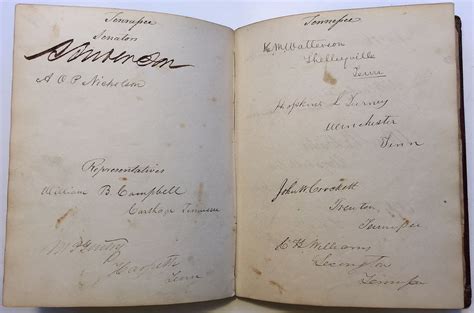 Tennessee
Senators
A. O. P. Nicholson
Representatives
William B. Campbell
Carthage Tennessee
M P Gentry
Harpeth
Tenn
Tennessee
H. M. Watterson
Shelbyville
Tenn
Hopkins L Turney
Winchester
Tenn
John W Crockett
Trenton
Tennessee
C H Williams
Lexington
Tennessee